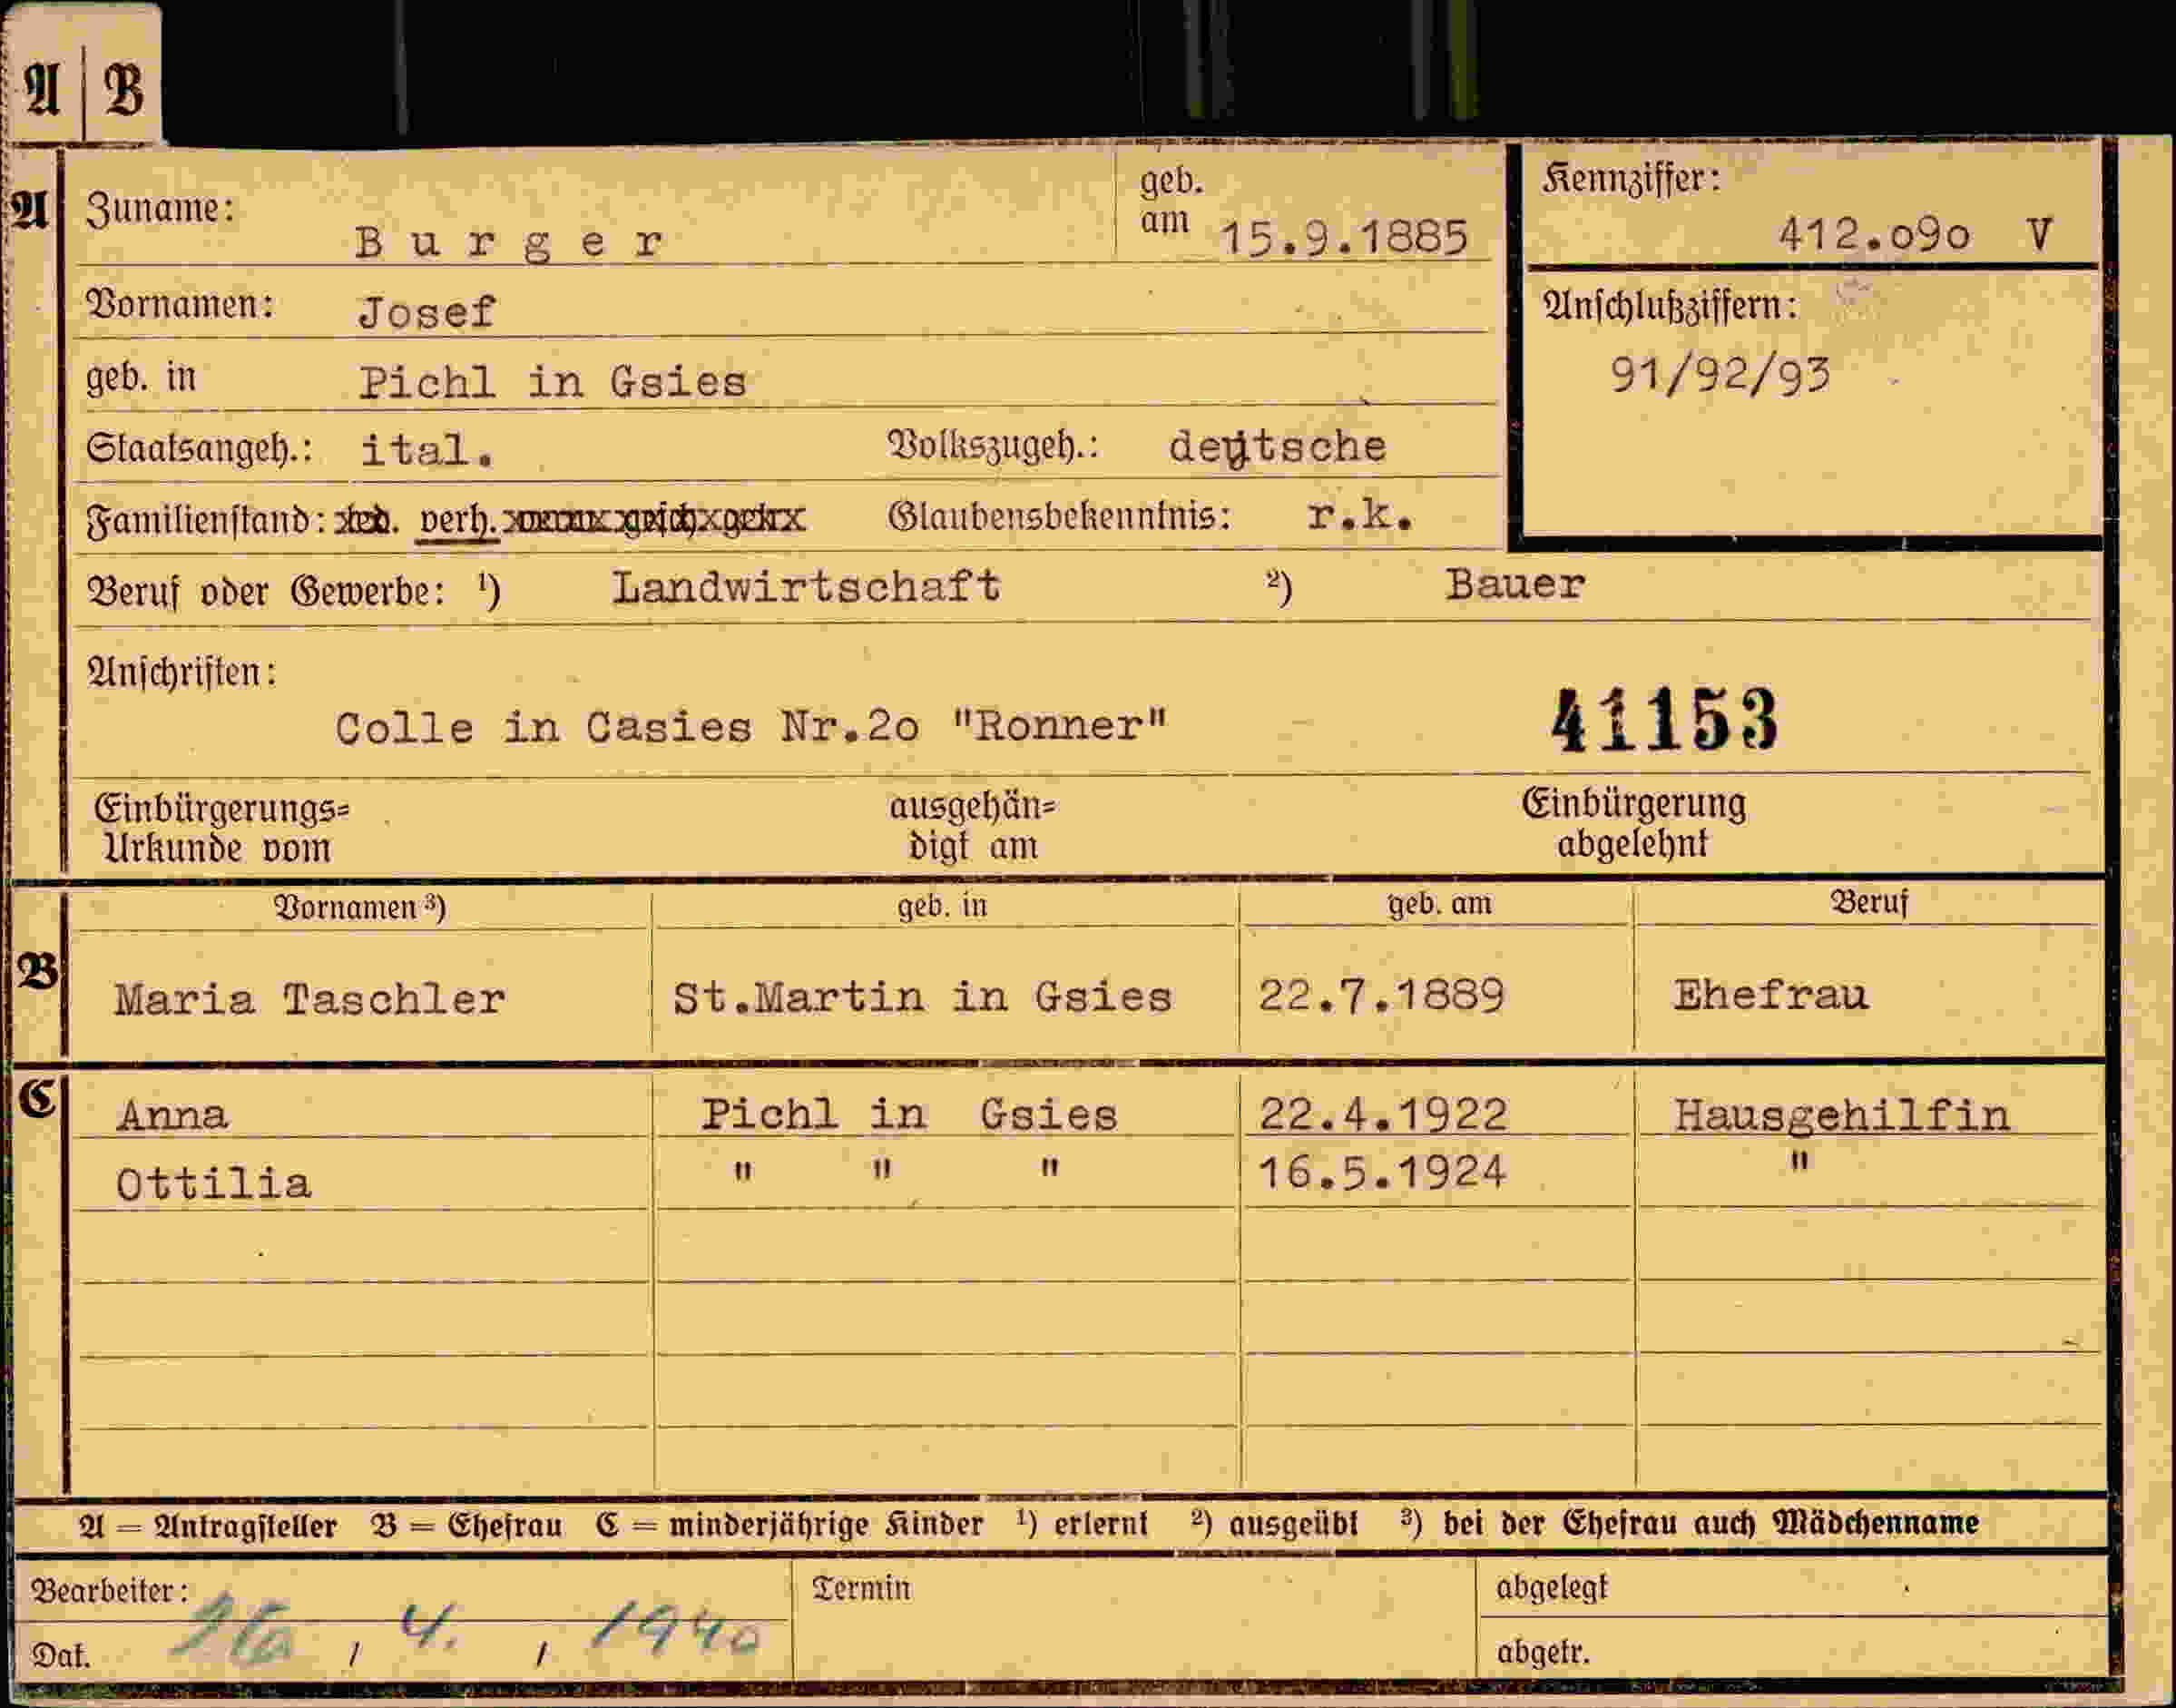 A B
A Zuname: Burger geb. am 15.9.1885
Kennziffer: 412.o9o V
Vornamen: Josef
Anschlußziffern:
91/92/93
geb. in Pichl in Gsies
Staatsangeh.: ital. Volkszugeh.: deutsche
Familienstand: led. verh. Glaubensbekenntnis: r.k.
Beruf oder Gewerbe: ¹) Landwirtschaft ²) Bauer
Anschriften:
Colle in Casies Nr.2o "Ronner" 41153
Einbürgerungs= ausgehän= Einbürgerung
Urkunde vom digt am abgelehnt
Vornamen ³) geb. in geb. am Beruf
B Maria Taschler St.Martin in Gsies 22.7.1889 Ehefrau
C Anna Pichl in Gsies 22.4.1922 Hausgehilfin
Ottilia " " " 16.5.1924 "
A = Antragsteller B = Ehefrau C = minderjährige Kinder ¹) erlernt ²) ausgeübt ³) bei der Ehefrau auch Mädchenname
Bearbeiter: Termin abgelegt
Dat. 26 / 4. / 1940 abgetr.